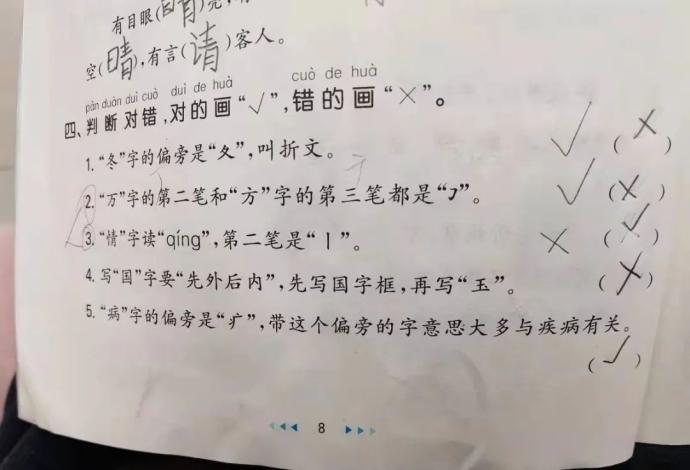 有目眼(睛)亮,
空(晴),有言(请)客人。
pàn duàn duì cuò duì de huà cuò de huà
四、判断对错,对的画“√”,错的画“×”。
1.“冬”字的偏旁是“夂”,叫折文。 √ (×)
2.“万”字的第二笔和“方”字的第三笔都是“㇆”。 √ (×)
3.“情”字读“qíng”,第二笔是“丨”。 × (√)
4.写“国”字要“先外后内”,先写国字框,再写“玉”。 (×)
5.“病”字的偏旁是“疒”,带这个偏旁的字意思大多与疾病有关。
(√)
8